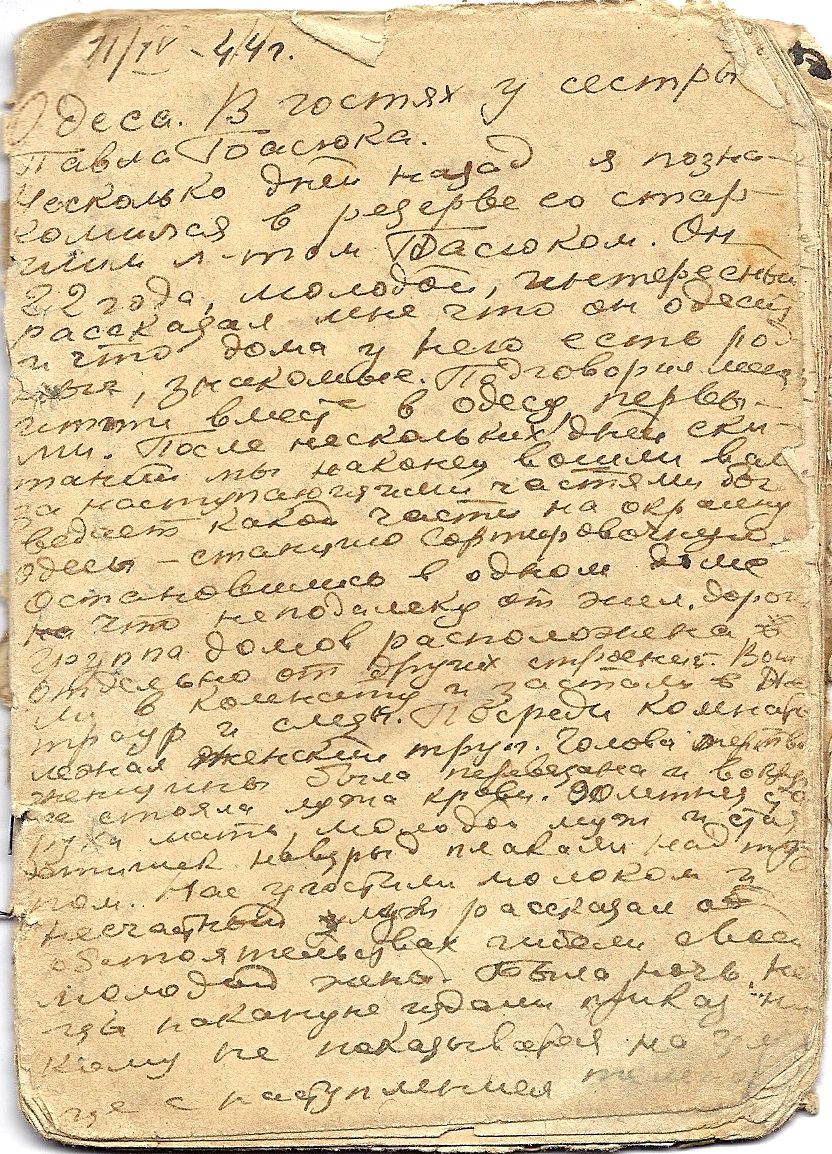 11/IV-44г.
Одеса. В гостях у сестры
Павла Басюка.
Несколько дней назад я позна-
комился в резерве со стар-
шим л-том Басюком. Он
22 года, молодой, интересный
рассказал мне что он одесит
и что дома у него есть род
ные, знакомые. Подговорил меня
итти вместе в одесу первы-
ми. После нескольких дней ски-
таний мы наконец вошли
за наступающими частями бог
ведает какой части на окраину
одесы - станцию Сортировочную.
Остановились в одном доме
что неподалеку от жел. дороги
группа домов расположена
отдельно от других строений. Вош
ли в комнату и застали в ней
траур и слезы. Посреди комнаты
лежал женский труп. Голова мертвой
женщины была перевязана и вокруг
стояла лужа крови. 90 летняя ста
руха мать, молодой муж и
навзрыд плакали над тру
пом. Нас угостили молоком и
несчастный муж рассказал об
обстоятельствах гибели своей
молодой жены. Была ночь. Нем
цы накануне издали приказ ни
кому не показываться на ули
це с наступлением темноты